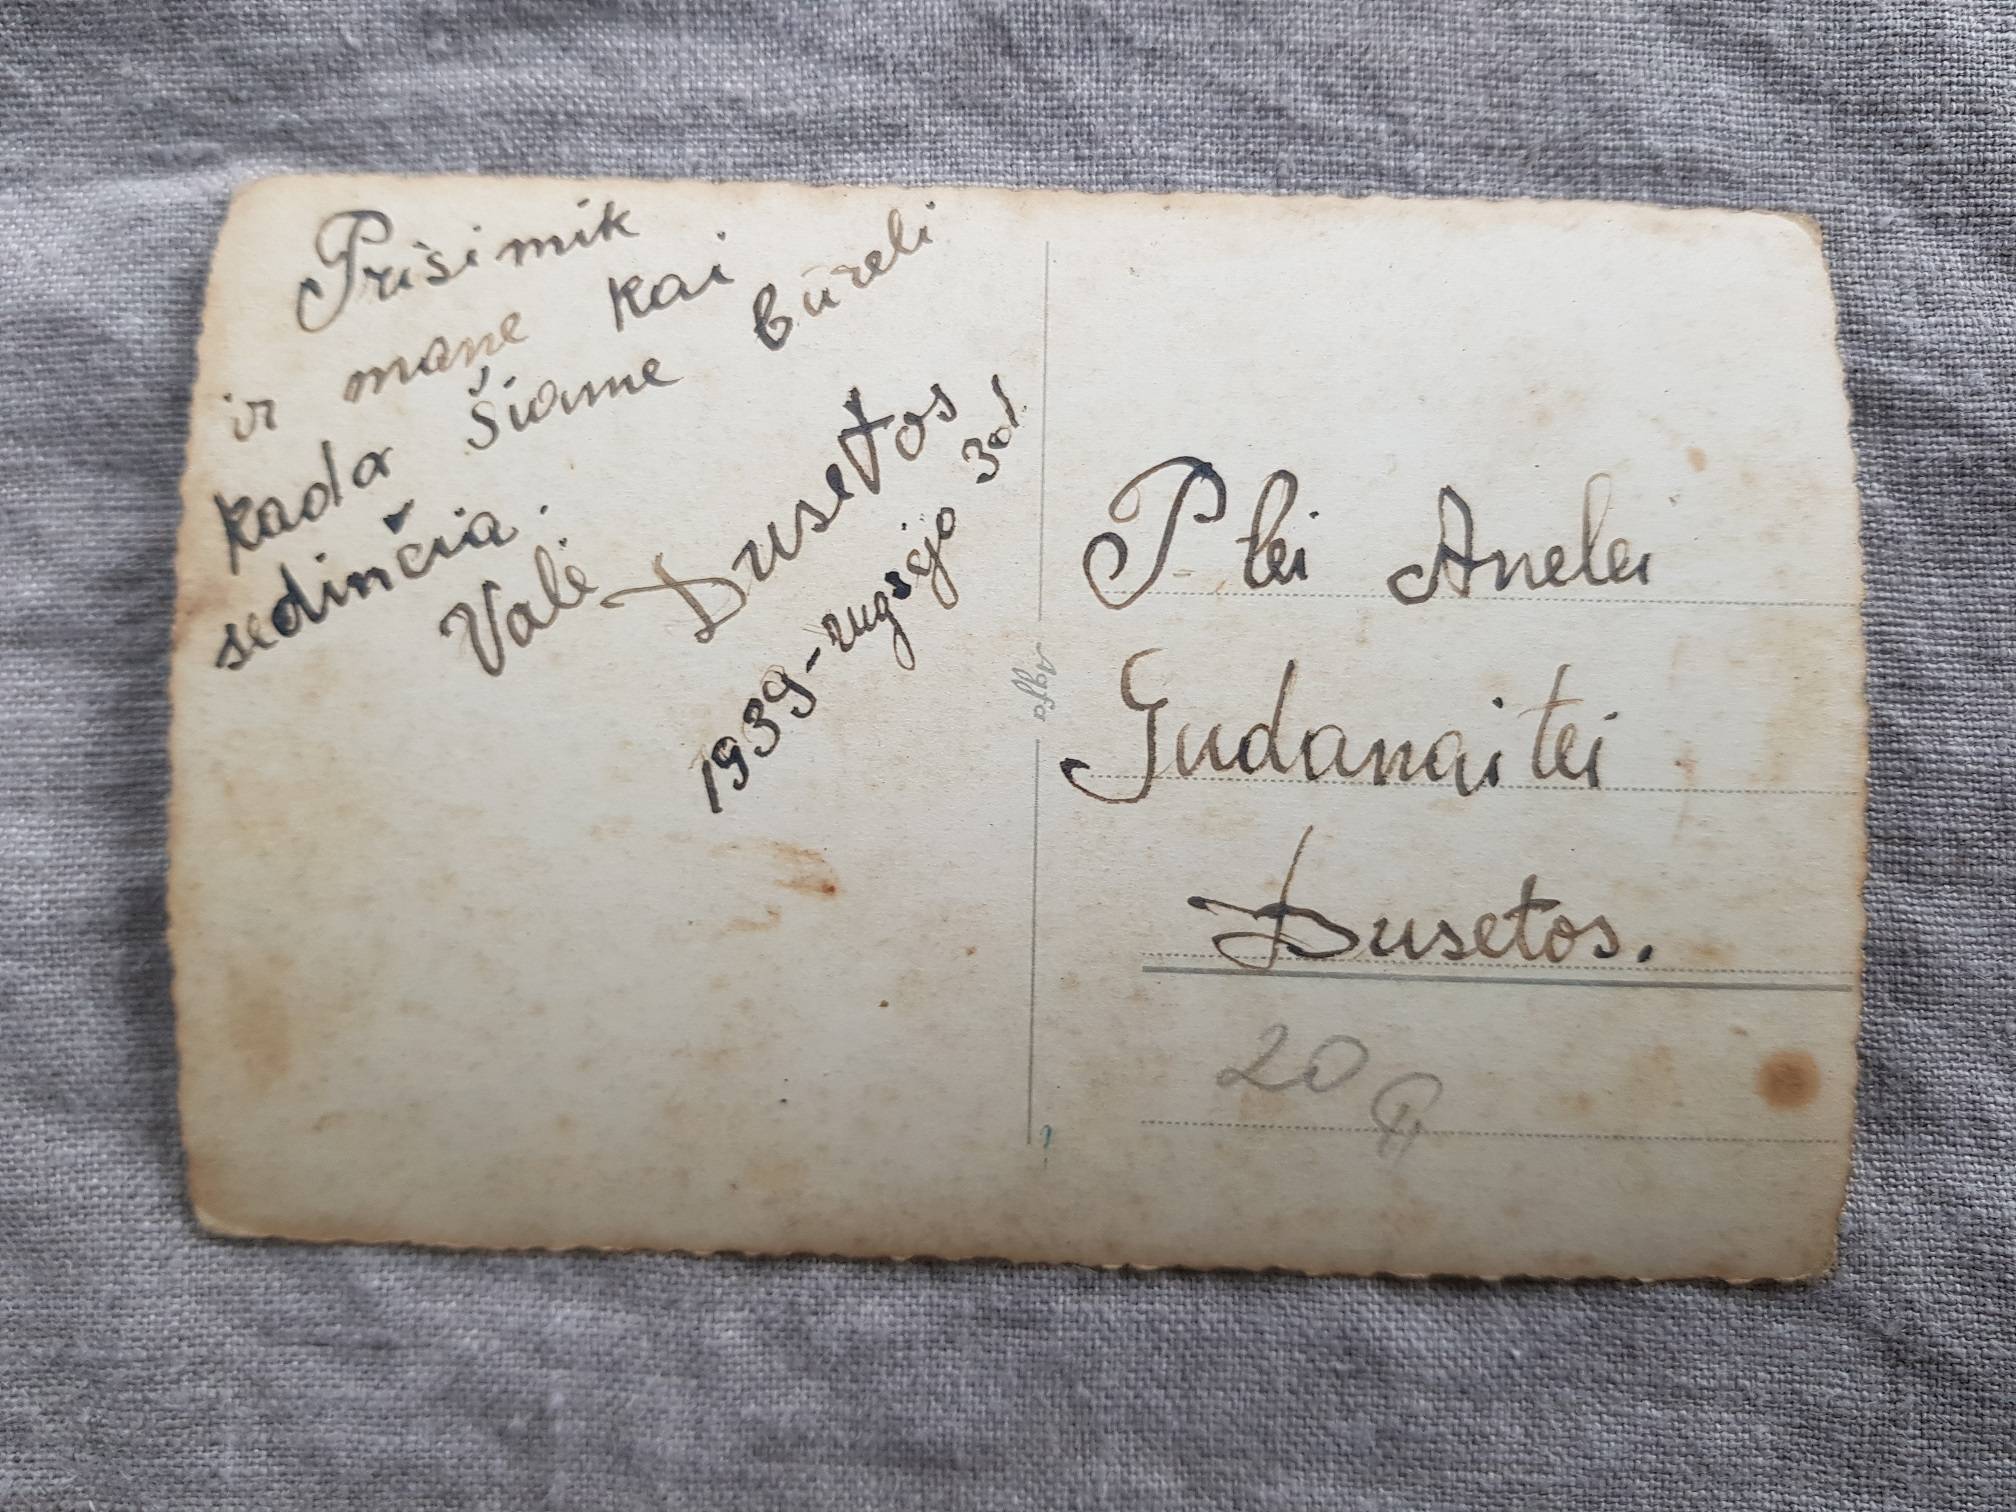 Prisimik
ir mane kai
kada šiame būreli
sedinčia.
Valė
Dusetos
1939-rugsėjo 30/
Agfa
P lei Anelei
Gudanaitei
Dusetos.
20